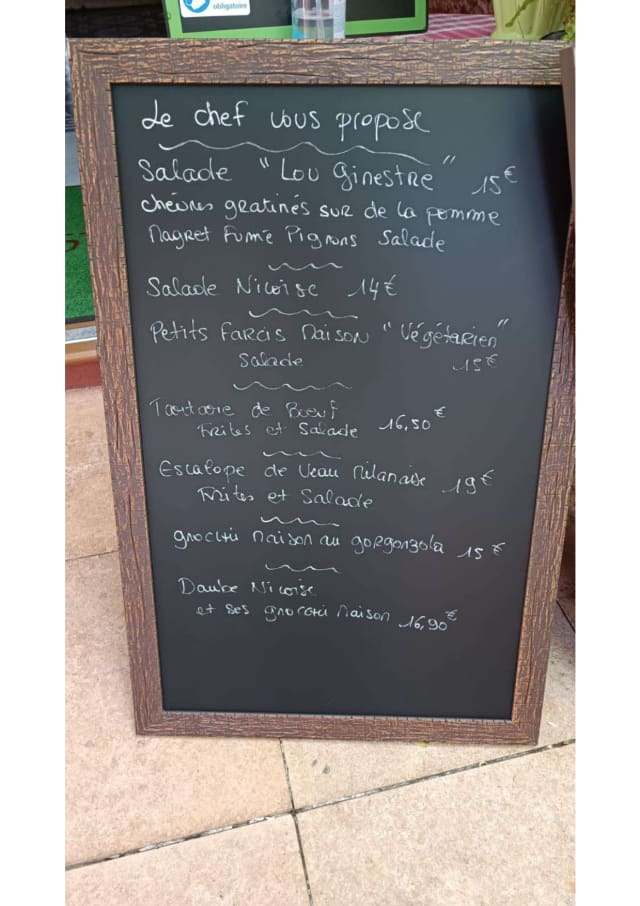 obligatoire
Le chef vous propose
Salade "Lou Ginestre" 15€
chèvres gratinés sur de la pomme
Magret Fumé Pignons Salade
Salade Niçoise 14€
Petits Farcis Maison "Végétarien"
Salade 15€
Tartare de Boeuf 16,50€
Frites et Salade
Escalope de Veau Milanaise 19€
Frites et Salade
gnocchi Maison au gorgonzola 15€
Daube Niçoise
et ses gnocchi Maison 16,90€